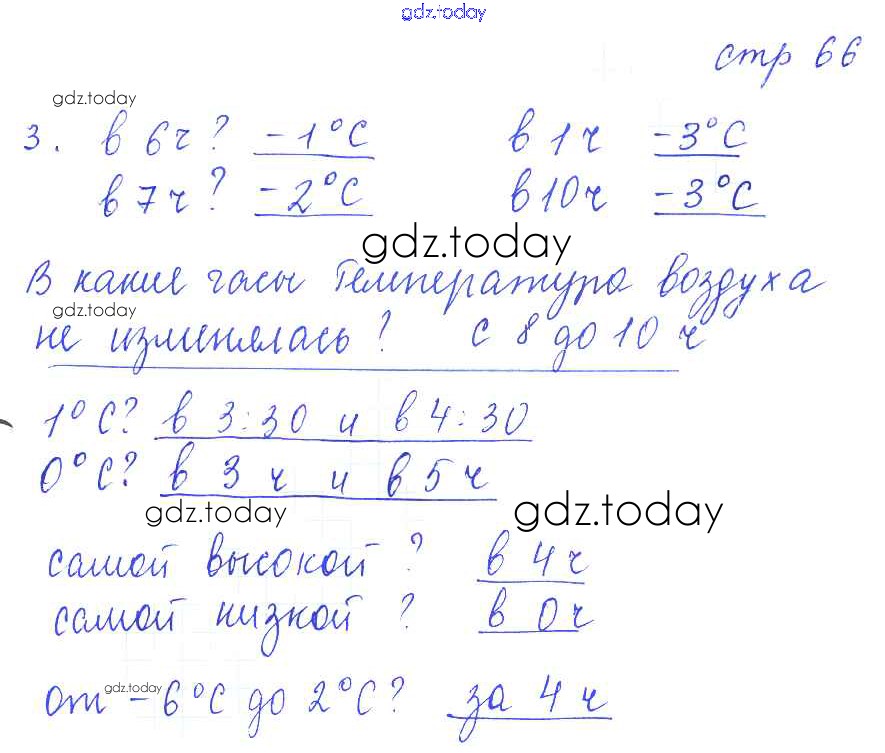 gdz.today
стр 66
gdz.today
3. в 6ч? -1°С в 1ч -3°С
в 7ч? -2°С в 10ч -3°С
gdz.today
В какие часы температура воздуха
gdz.today
не изменялась? с 8 до 10 ч
1°С? в 3:30 и в 4:30
0°С? в 3 ч и в 5 ч
gdz.today gdz.today
самой высокой? в 4ч
самой низкой? в 0ч
gdz.today
от -6°С до 2°С? за 4 ч